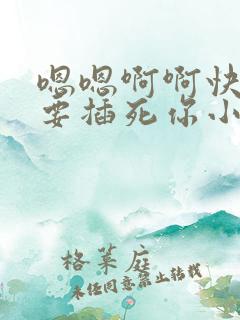 嗯嗯啊啊快
要插死你小
格莱庭
未经同意禁止转载